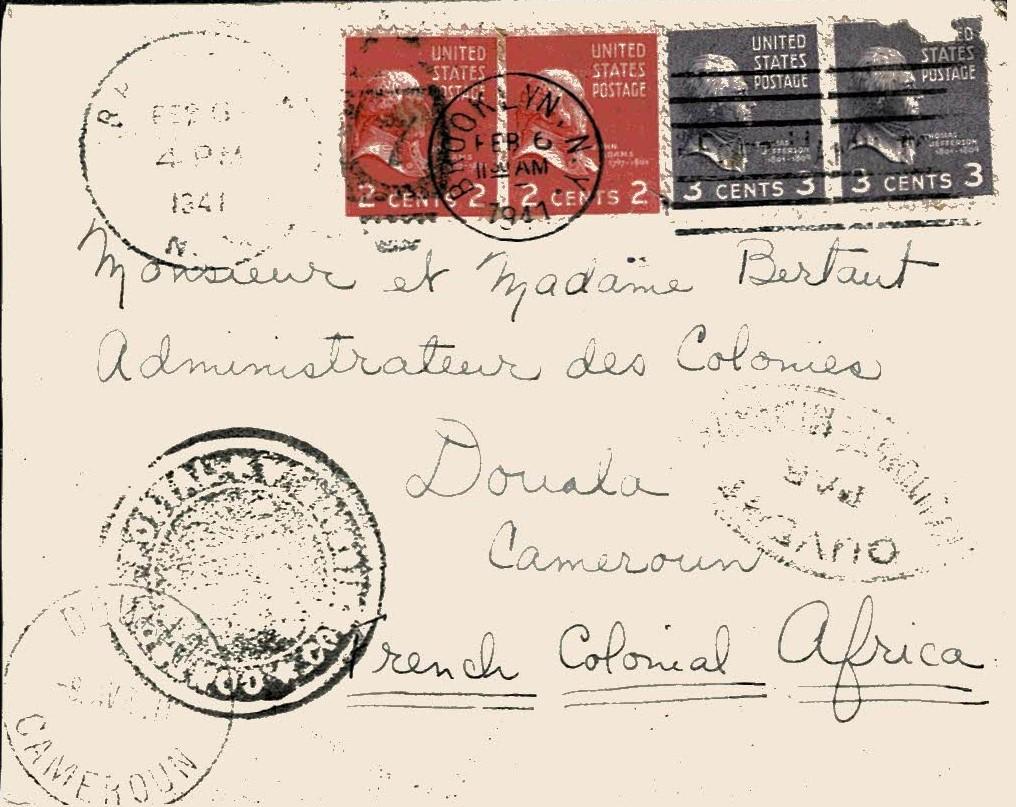 UNITED STATES POSTAGE
2 CENTS 2
UNITED STATES POSTAGE
2 CENTS 2
UNITED STATES POSTAGE
3 CENTS 3
STATES POSTAGE
THOMAS JEFFERSON
1801-1809
3 CENTS 3
4 PM
1941
BROOKLYN, N.Y.
FEB 6
11 30 AM
1941
Monsieur et Madame Bertaut
Administrateur des Colonies
Douala
Cameroun
French Colonial Africa
OUVERT
PAR
CAMEROUN